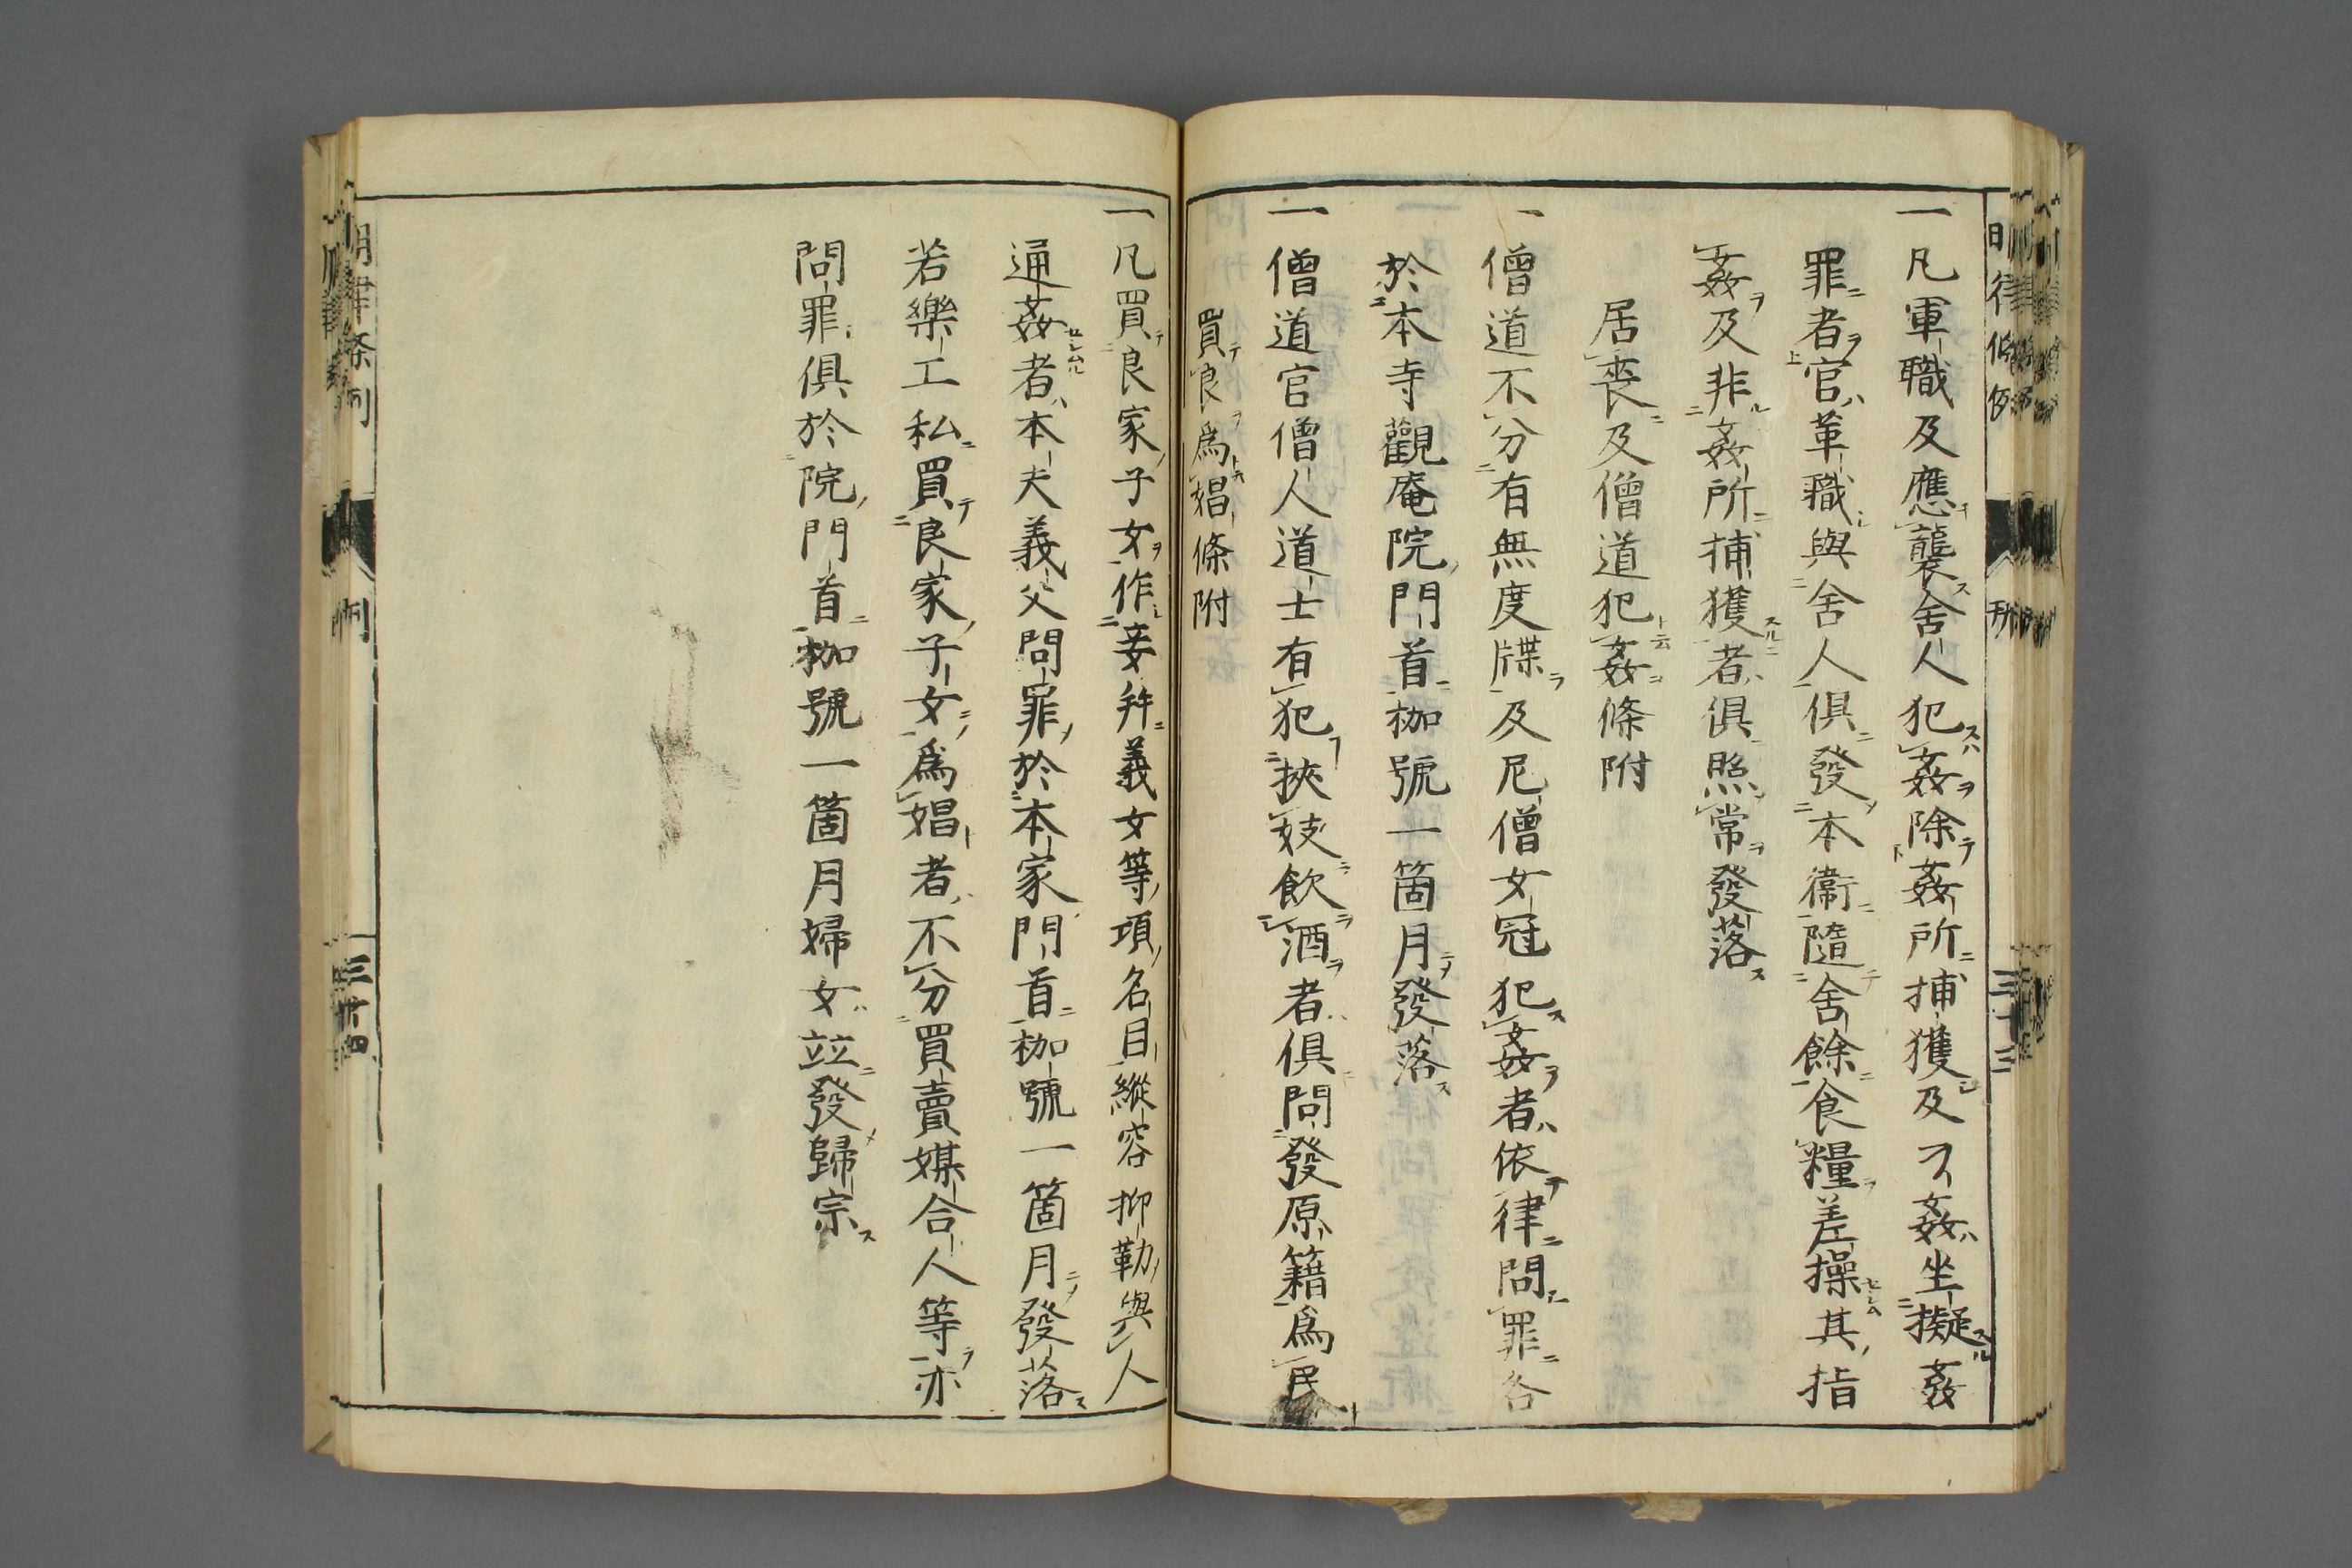 一凡軍職及應襲舍人犯姦除姦所捕獲及刁姦坐擬姦
罪者官革職與舍人俱發本衞隨舍餘食糧差操其指
姦及非姦所捕獲者俱照常發落
居喪及僧道犯姦條附
一僧道不分有無度牒及尼僧女冠犯姦者依律問罪各
於本寺觀庵院門首枷號一箇月發落
一僧道官僧人道士有犯挾妓飲酒者俱問發原籍爲民
買良爲娼條附
一凡買良家子女作妾幷義女等項名目縱容抑勒與人
通姦者本夫義父問罪於本家門首枷號一箇月發落
若樂工私買良家子女爲娼者不分買賣媒合人等亦
問罪俱於院門首枷號一箇月婦女竝發歸宗